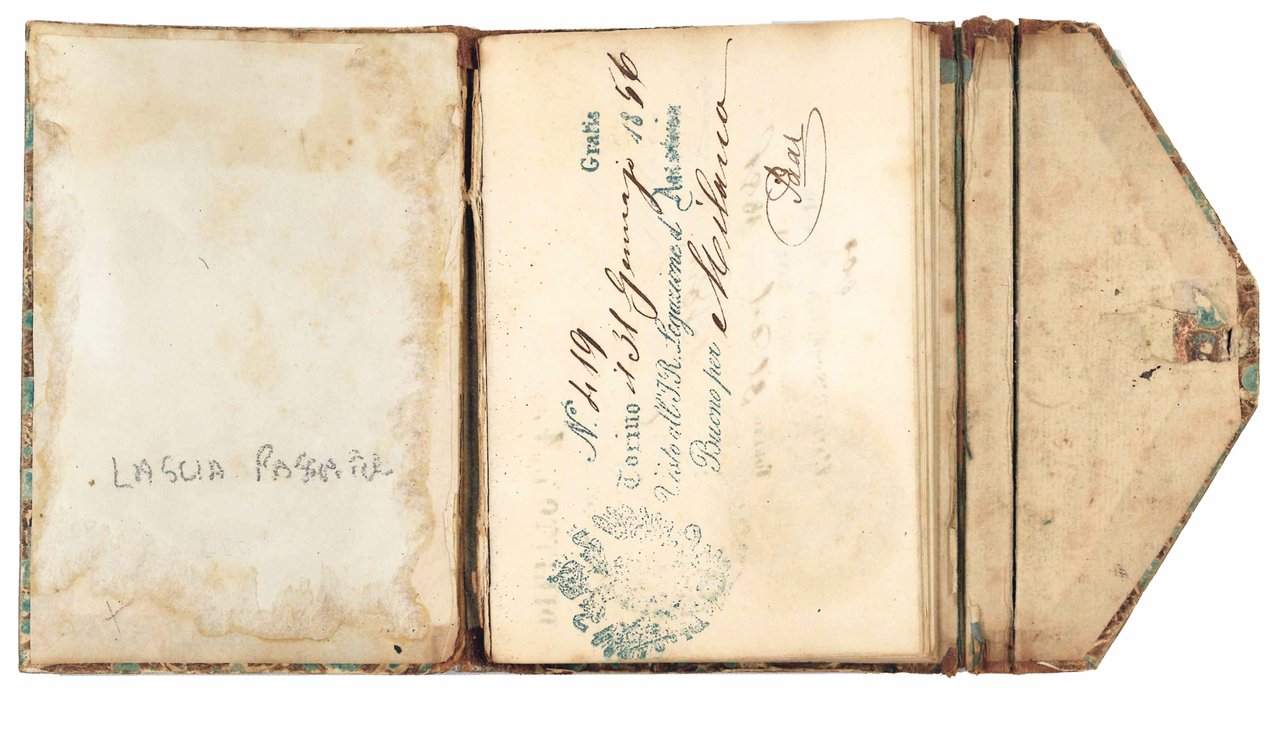 LASCIA PASSARE
N. 419 Gratis
Torino il 31 Gennajo 1856
Visto all'I.R. Legazione d'Austria
Buono per Milano